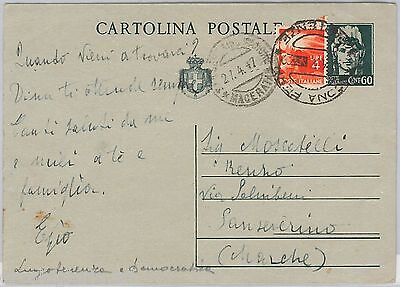 CARTOLINA POSTALE
CENT 60
27.4.47
MACERATA
Quando vieni a trovarci?
ti attende sempre
Tanti saluti da me
e miei a te e
famiglia.
Ezio
e democratica
Sig Moscatelli
Benno
Via Salimbeni
Sanseverino
(Marche)